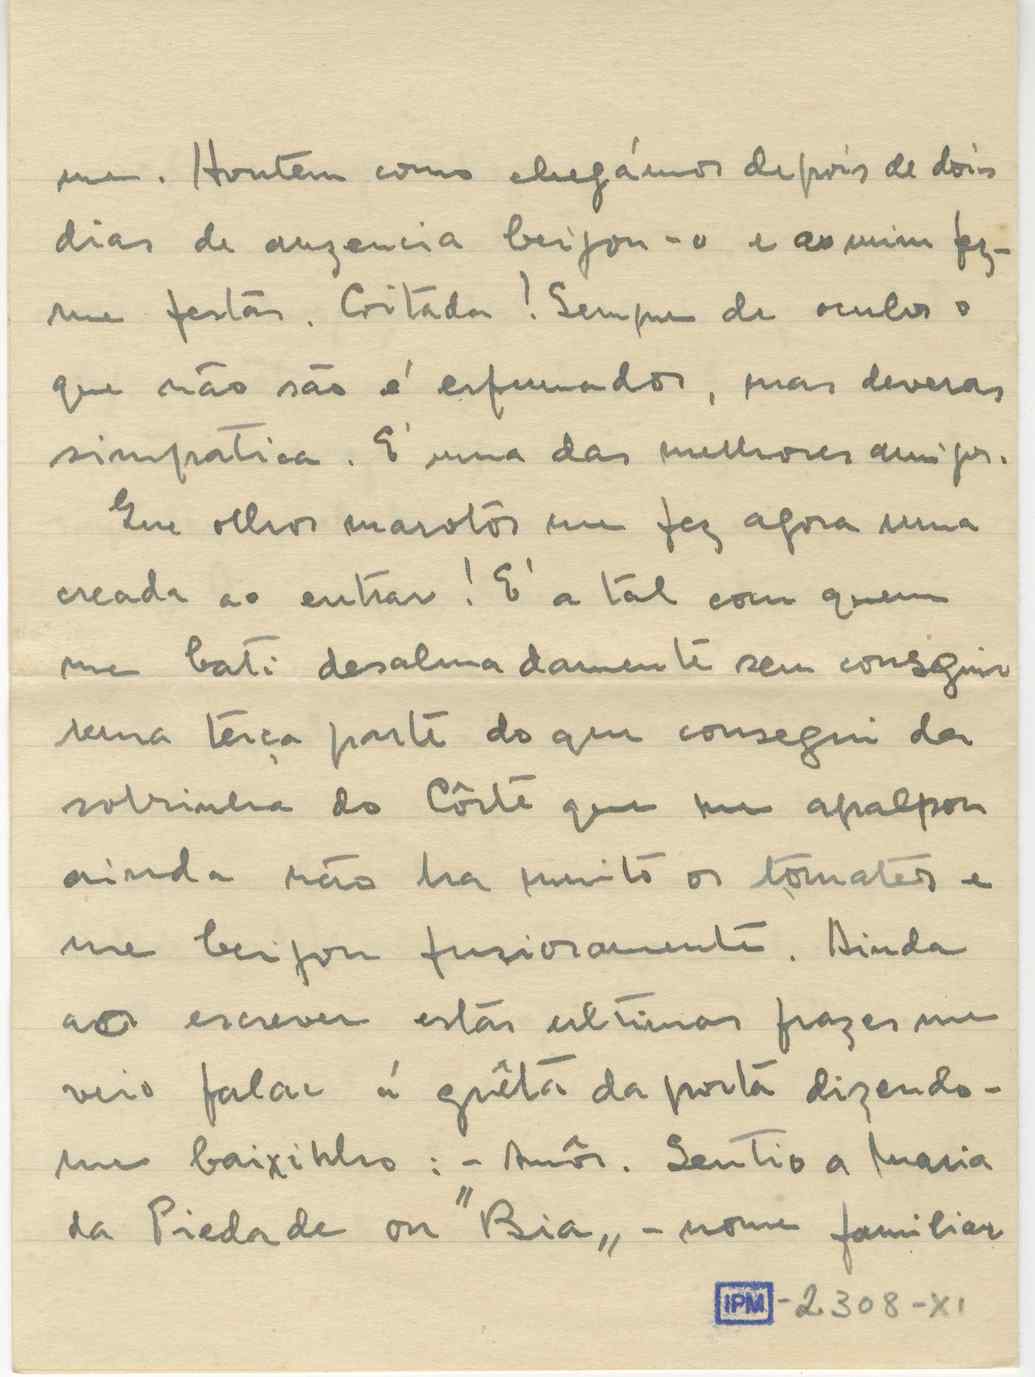 me. Hontem como chegámos depois de dois
dias de auzencia beijou-o e ao mim fez-
me festas. Coitada! Sempre de oculos o
que não são é esfumados, mas deveras
simpatica. E' uma das melhores amigas.
Que olhos marotos me fez agora uma
creada ao entrar! E' a tal com quem
me bati desalmadamente sem conseguir
uma terça parte do que consegui da
sobrinha do Côrte que me apalpou
ainda não ha muito os tomates e
me beijou furiosamente. Ainda
ao escrever estas ultimas frazes me
veio falar á grêta da porta dizendo-
me baixinho: - Amôr. Sentio a Maria
da Piedade ou "Bia„ - nome familiar
IPM-2308-XI